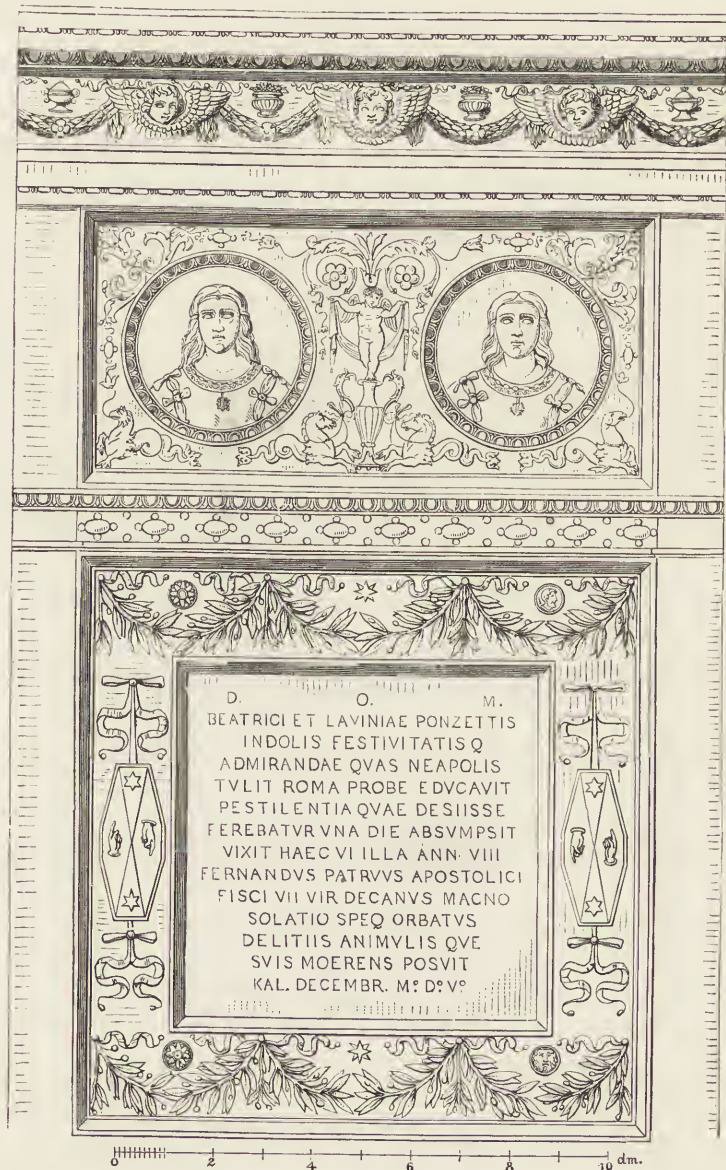 D. O. M.
BEATRICI ET LAVINIAE PONZETTIS
INDOLIS FESTIVITATIS Q
ADMIRANDAE QVAS NEAPOLIS
TVLIT ROMA PROBE EDVCAVIT
PESTILENTIA QVAE DESIISSE
FEREBATVR VNA DIE ABSVMPSIT
VIXIT HAEC VI ILLA ANN· VIII
FERNANDVS PATRVVS APOSTOLICI
FISCI VII VIR DECANVS MACNO
SOLATIO SPEQ ORBATVS
DELITIIS ANIMVLIS QVE
SVIS MOERENS POSVIT
KAL. DECEMBR. Mº Dº Vº
0 2 4 6 8 10 dm.